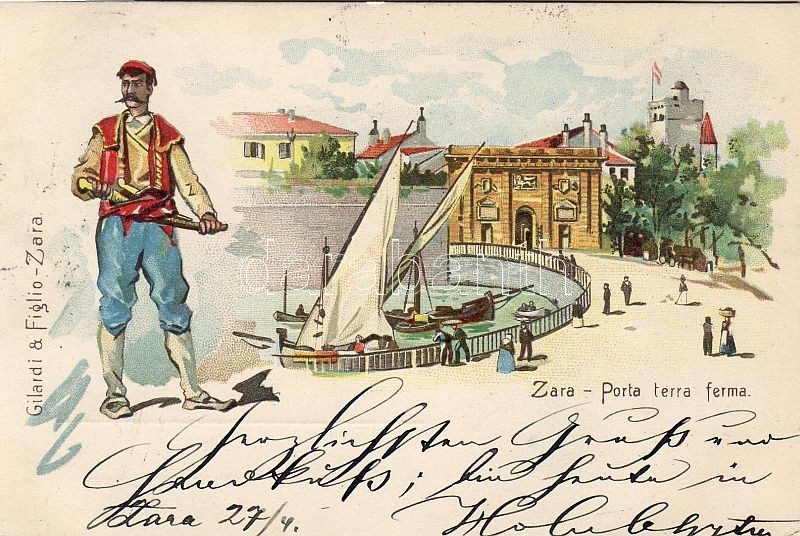 Gilardi & Figlio - Zara.
Zara - Porta terra ferma.
Herzlichsten Gruß und
Handkuß; bin heute in
Zara 27/4.
darabanth